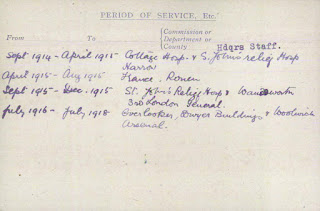 PERIOD OF SERVICE, Etc.
From To Commission or Department or County Hdqrs Staff.
Sept 1914 - April 1915 Cottage Hosp. & S. John's relief Hosp
Harrow
April 1915 - Aug 1915 France, Rouen
Sept 1915 - Dec. 1915 St. John's Relief Hosp & Wandsworth
3rd London General.
July 1916 - July 1918 Overlooker, Dwyer Buildings, Woolwich
Arsenal.